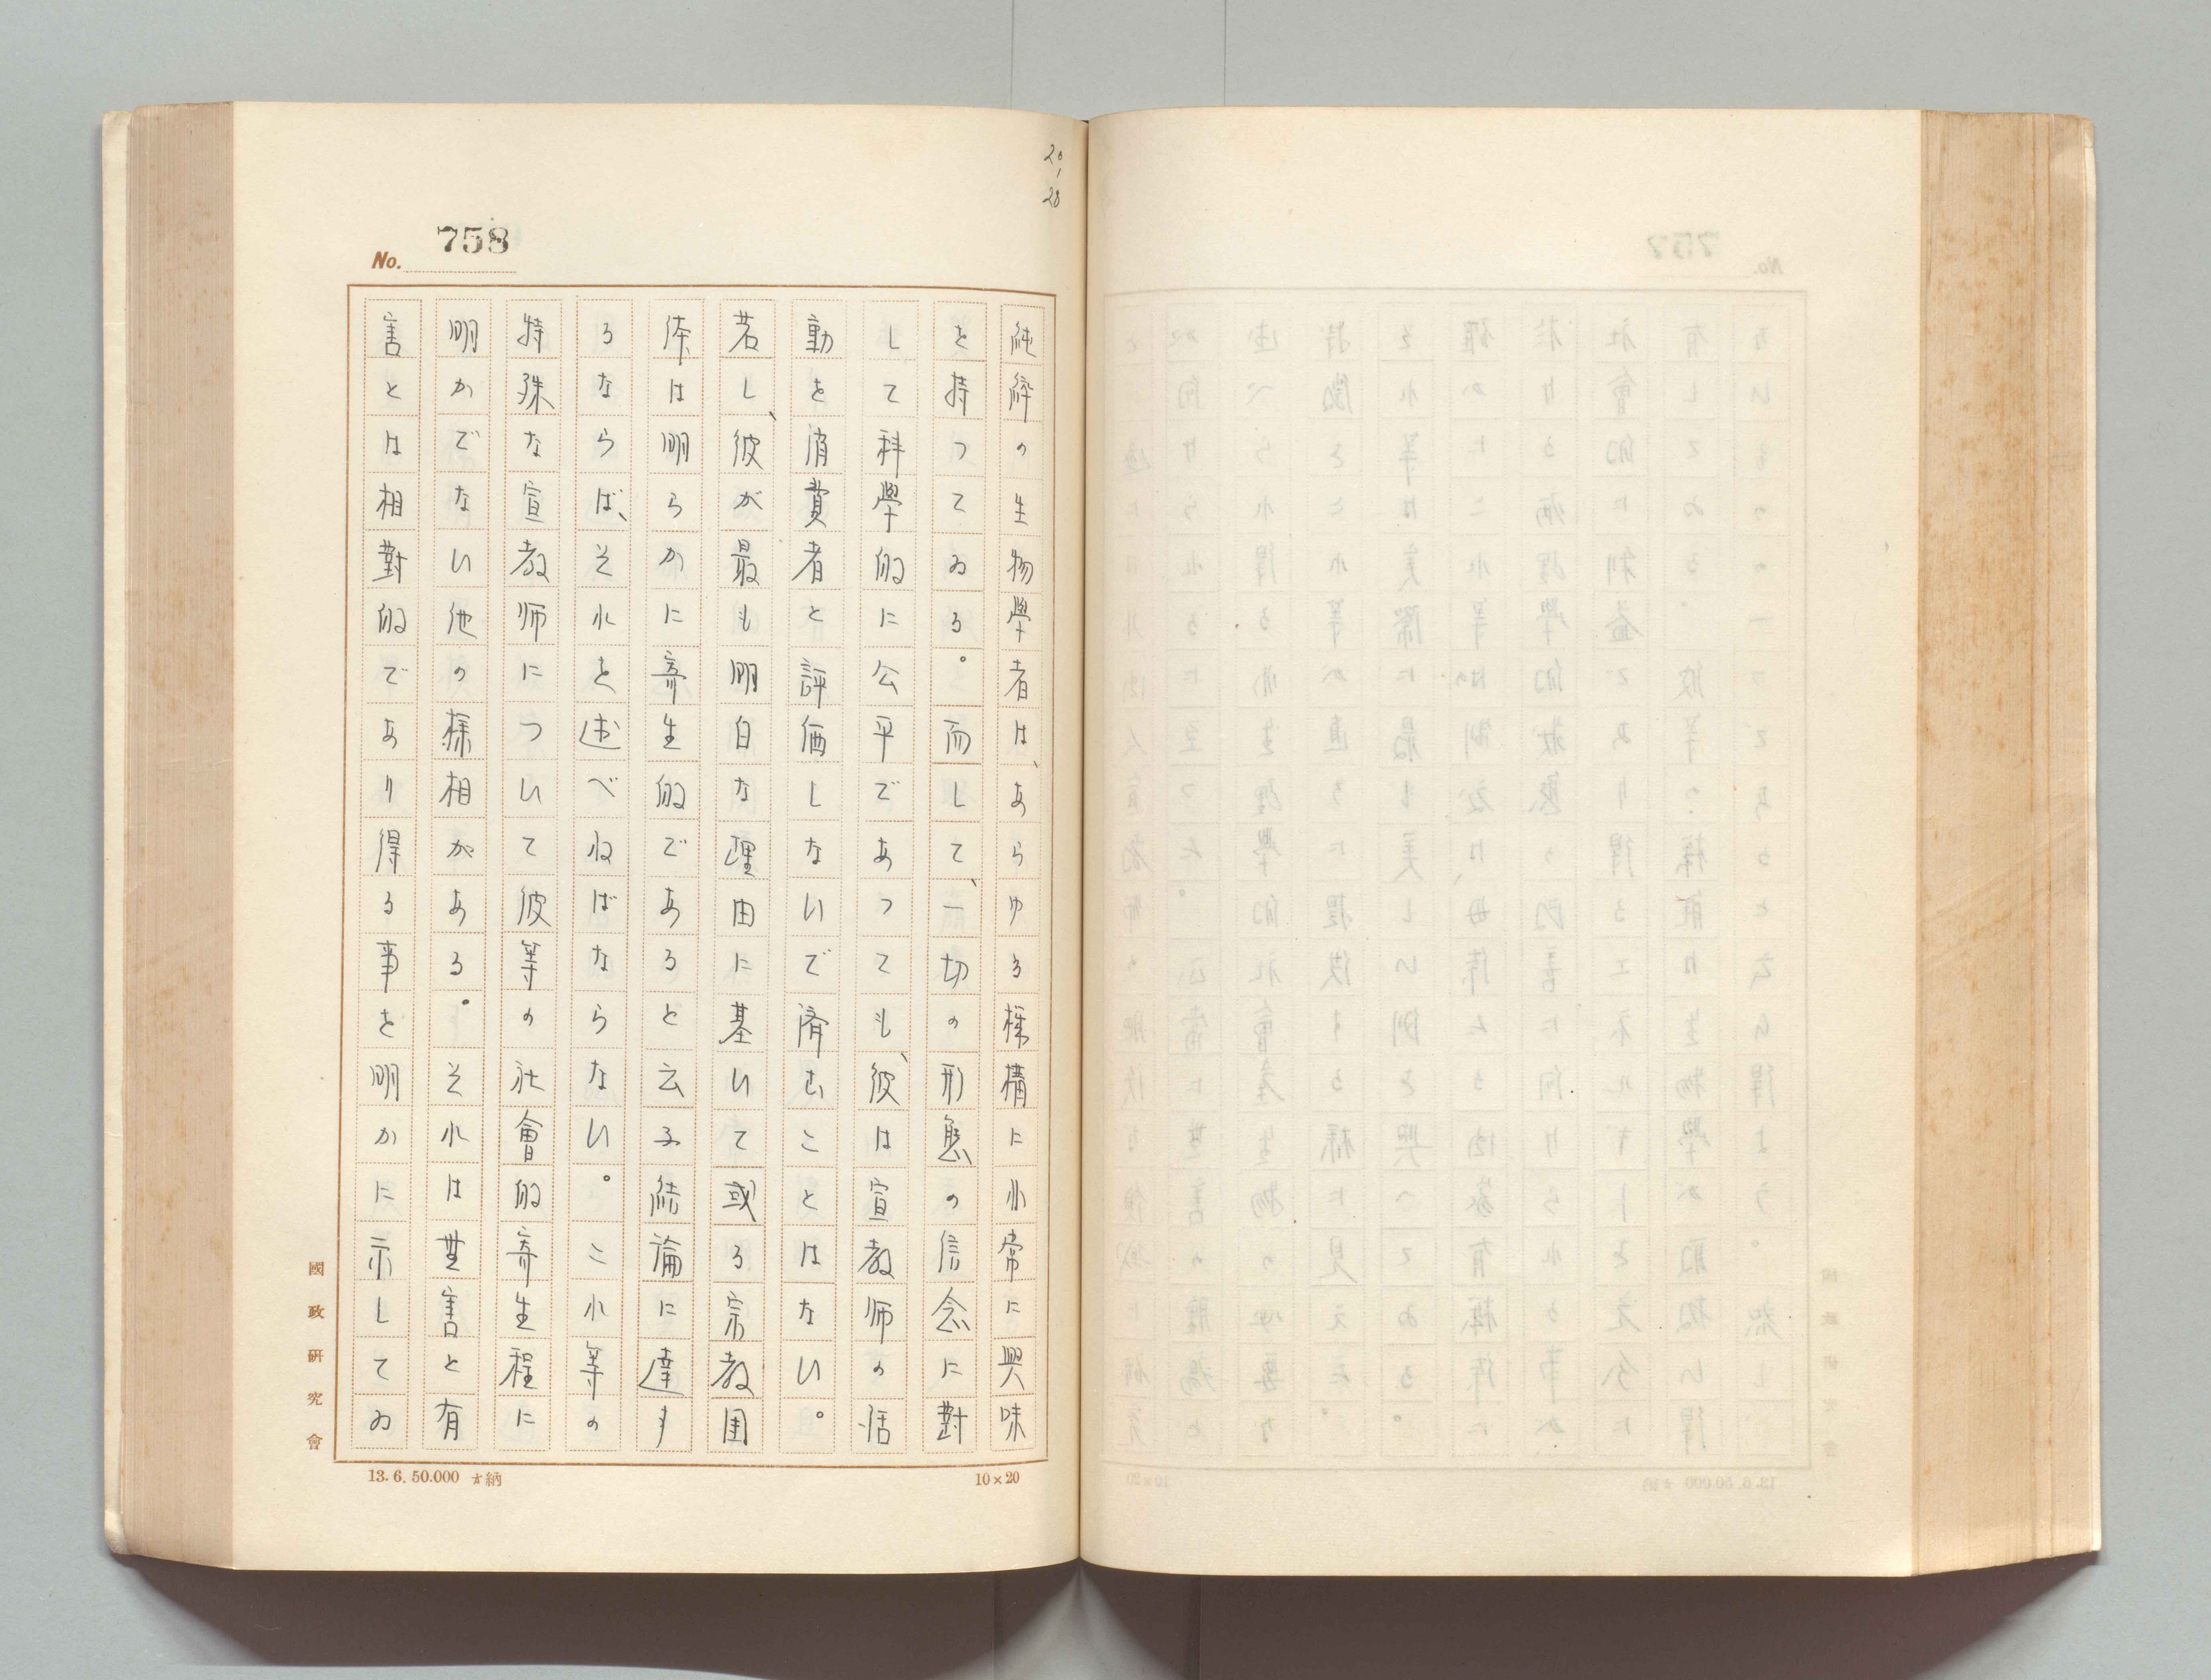 20/28
No. 758
純粋の生物學者は、あらゆる機構に非常に興味
を持つてゐる。而して、一切の形態の信念に對
して科學的に公平であつても、彼は宣教師の活
動を消費者と評価しないで済むことはない。
若し、彼が最も明白な理由に基いて或る宗教團
体は明らかに寄生的であると云ふ結論に達す
るならば、それを述べねばならない。これ等の
特殊な宣教師について彼等の社會的寄生程に
明かでない他の様相がある。それは無害と有
害とは相對的であり得る事を明かに示してゐ
國政研究會
13.6.50.000 納
10×20